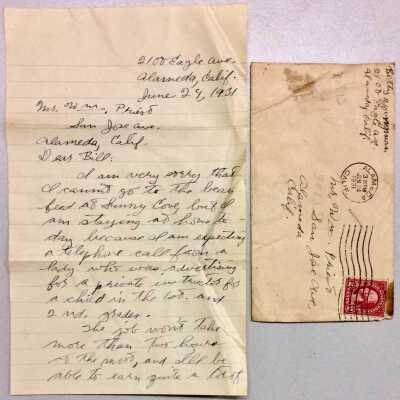 2100 Eagle Ave.
Alameda, Calif.
June 24, 1931
Mr. Wm. Priest
San Jose Ave.
Alameda, Calif.
Dear Bill:
I am very sorry that
I cannot go to the
feed at Sunny Cove, but I
am staying at home to-
day because I am expecting
a telephone call from a
lady who was advertising
for a private instructor for
a child in the 1st. and
2nd. grades.
The job won't take
more than two hours
of the most, and I'll be
able to earn quite a lot of
Billy
2100 Eagle Ave
Alameda Calif.
ALAMEDA
CALIF.
JUN
1931
Mr. Wm. Priest
San Jose Ave.
Alameda
Calif.